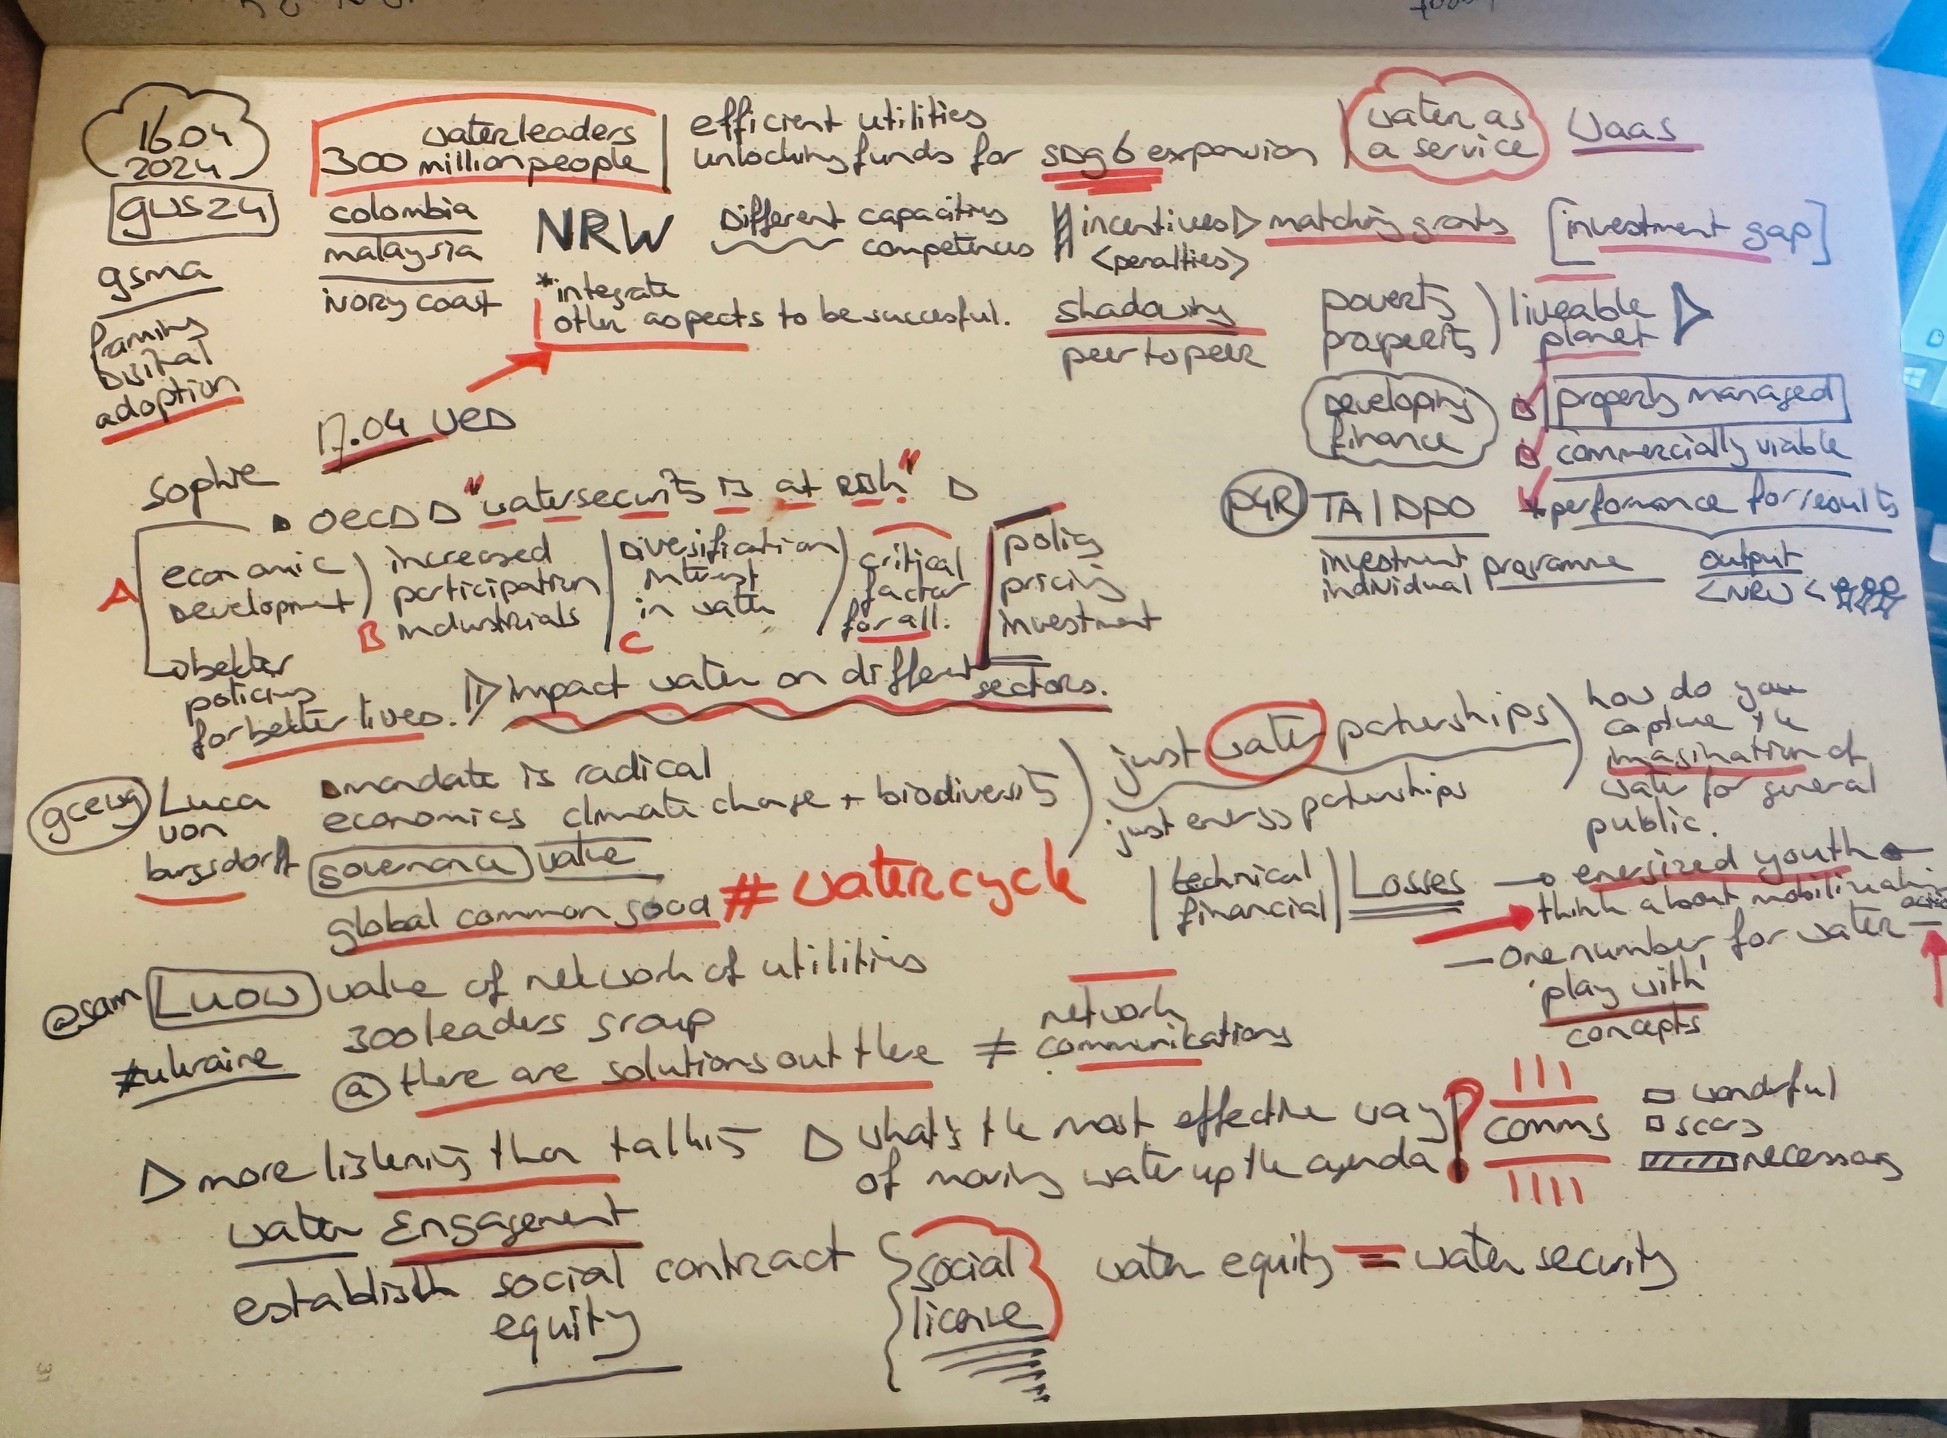 16.04
2024
gws24
gsma
framing
digital
adoption
waterleaders
300 million people
colombia
malaysia
ivory coast
efficient utilities
unlocking funds for sdg6 expansion
water as
a service
Waas
NRW
Different capacities
competences
incentives
<penalties>
matching grants
[investment gap]
*integrate
other aspects to be succesful.
shadowing
peer to peer
poverty
prosperity
liveable
planet
Developing
finance
properly managed
commercially viable
P4R TA | DPO
*performance for results
investment programme
individual
output
<NRW<
17.04 WED
Sophie
OECD "watersecurity is at risk!"
A
economic
Development
better
policies
for better lives.
increased
participation
B industrials
Diversification
interest
in water
C
critical
factor
for all.
policy
pricing
investment
impact water on different sectors.
gcewg Luca
von
burgsdorff
mandate is radical
economics climate change + biodiversity
governance value
global common good #watercycle
just water partnerships
just energy partnerships
how do you
capture the
imagination of
water for general
public.
technical
financial
Losses
energized youth
think about mobilization
one number for water
'play with'
concepts
@sam WOW value of network of utilities
300 leaders group
#ukraine
@ there are solutions out there ≠ network
communications
more listening than talking
what's the most effective way
of moving water up the agenda
comms
wonderful
scary
necessary
water Engagement
establish social contract
equity
social
licence
water equity = water security